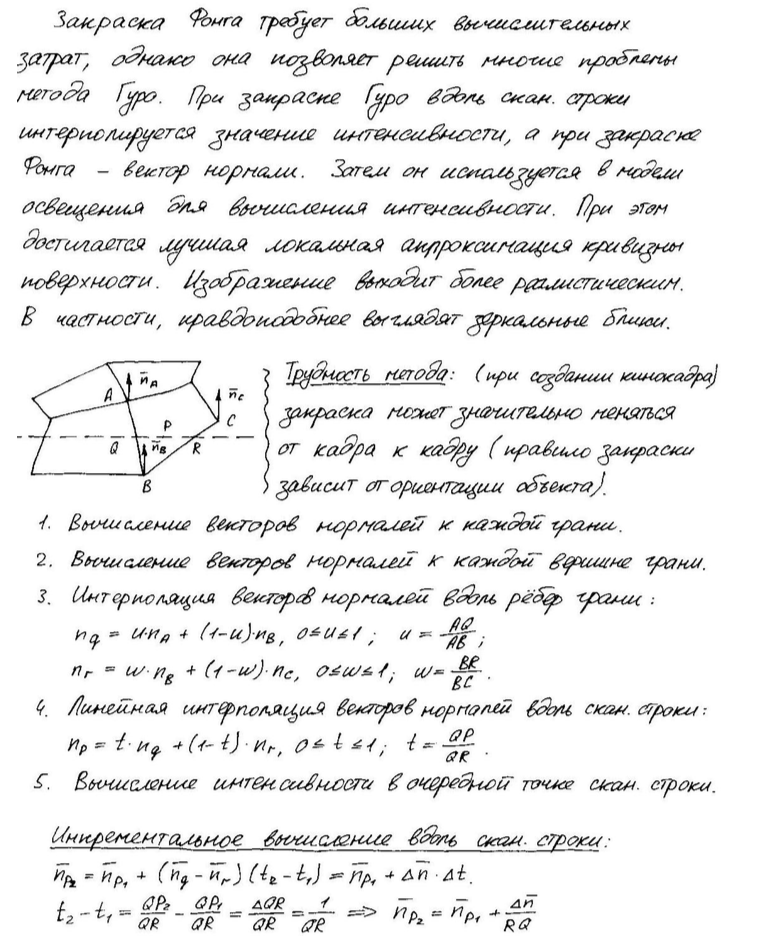 Закраска Фонга требует больших вычислительных
затрат, однако она позволяет решить многие проблемы
метода Гуро. При закраске Гуро вдоль скан. строки
интерполируется значение интенсивности, а при закраске
Фонга – вектор нормали. Затем он используется в модели
освещения для вычисления интенсивности. При этом
достигается лучшая локальная аппроксимация кривизны
поверхности. Изображение выходит более реалистическим.
В частности, правдоподобнее выглядят зеркальные блики.
A n̅A n̅C C P Q n̅B R B
Трудность метода: (при создании кинокадра)
закраска может значительно меняться
от кадра к кадру (правило закраски
зависит от ориентации объекта).
1. Вычисление векторов нормалей к каждой грани.
2. Вычисление векторов нормалей к каждой вершине грани.
3. Интерполяция векторов нормалей вдоль рёбер грани:
nq = u·nA + (1-u)·nB, 0≤u≤1; u = AQ/AB;
nr = w·nB + (1-w)·nC, 0≤w≤1; w = BR/BC.
4. Линейная интерполяция векторов нормалей вдоль скан. строки:
nP = t·nq + (1-t)·nr, 0≤t≤1; t = QP/QR.
5. Вычисление интенсивности в очередной точке скан. строки.
Инкрементальное вычисление вдоль скан. строки:
n̅P2 = n̅P1 + (n̅q - n̅r)(t2 - t1) = n̅P1 + Δn̅·Δt.
t2 - t1 = QP2/QR - QP1/QR = ΔQR/QR = 1/QR => n̅P2 = n̅P1 + Δn̅/RQ